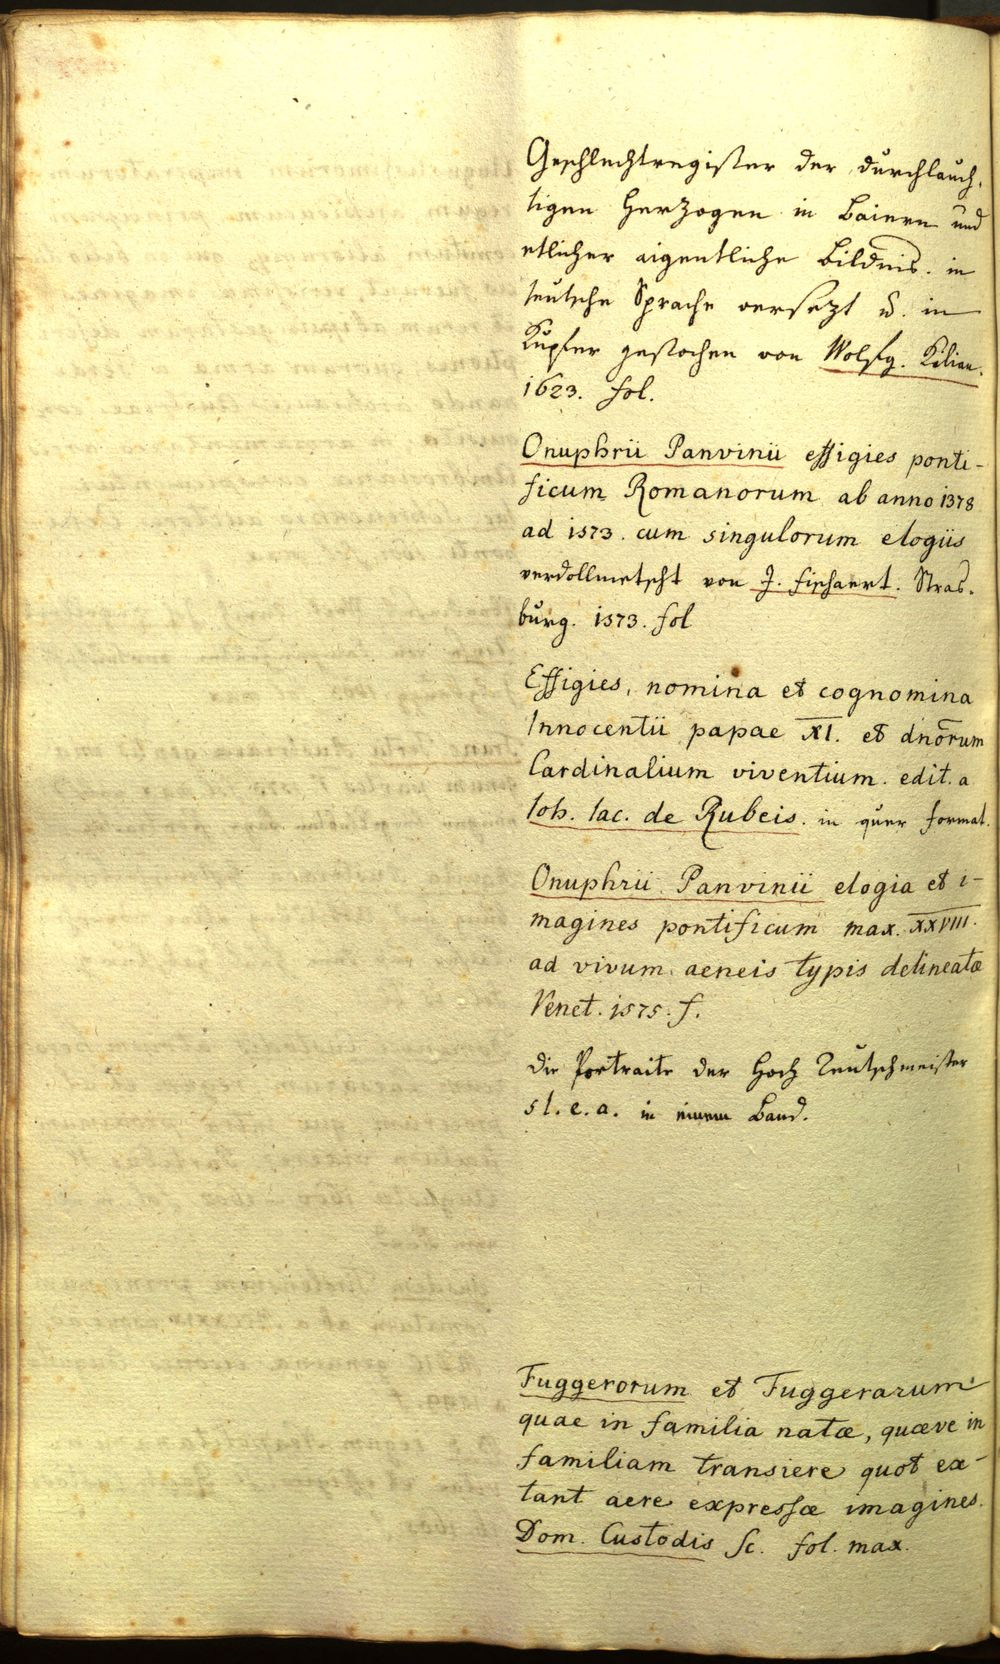 Geschlechtregister der durchlauch-
tigen Herzogen in Baiern und
etlicher eigentliche Bildnis. in
teutsche Sprache versezt u. in
Kupfer gestochen von Wolfg. Kilian.
1623. fol.
Onuphrii Panvinii effigies ponti-
ficum Romanorum ab anno 1378
ad 1573. cum singulorum elogiis
verdollmetscht von J. Fischaert. Stras-
burg. 1573. fol
Effigies, nomina et cognomina
Innocentii papae XI. et dnorum
Cardinalium viventium. edit. a
Ioh. Iac. de Rubeis. in quer format.
Onuphrii Panvinii elogia et i-
magines pontificum max. XXVIII.
ad vivum aeneis typis delineatæ
Venet. 1575. f.
Die Portraite der Hoch Teutschmeister
s l. e. a. in einem Band.
Fuggerorum et Fuggerarum
quae in familia natæ, quæve in
familiam transiere quot ex-
tant aere expressæ imagines.
Dom. Custodis Sc. fol. max.